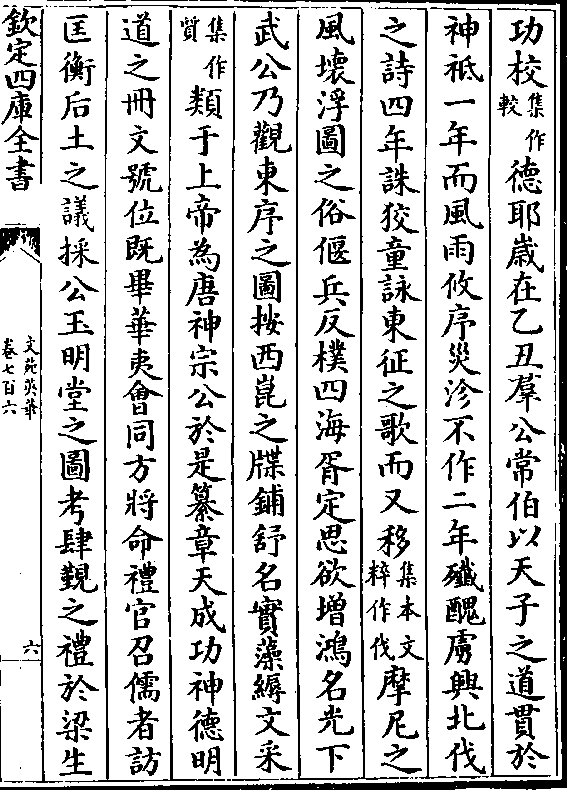 功校集作較德耶歳在乙丑羣公常伯以天子之道貫於
神祗一年而風雨攸序災沴不作二年殲醜虜興北伐
之詩四年誅狡童詠東征之歌而又移集本文粹作伐摩尼之
風壞浮圖之俗偃兵反樸四海胥定思欲增鴻名光下
武公乃觀東序之圖按西崑之牒鋪舒名實藻縟文采
集作質類于上帝為唐神宗公於是纂章天成功神德明
道之冊文號位既畢華夷會同方將命禮官召儒者訪
匡衡后土之議採公玉明堂之圖考肆覲之禮於梁生
欽定四庫全書
文苑英華
卷七百六
六